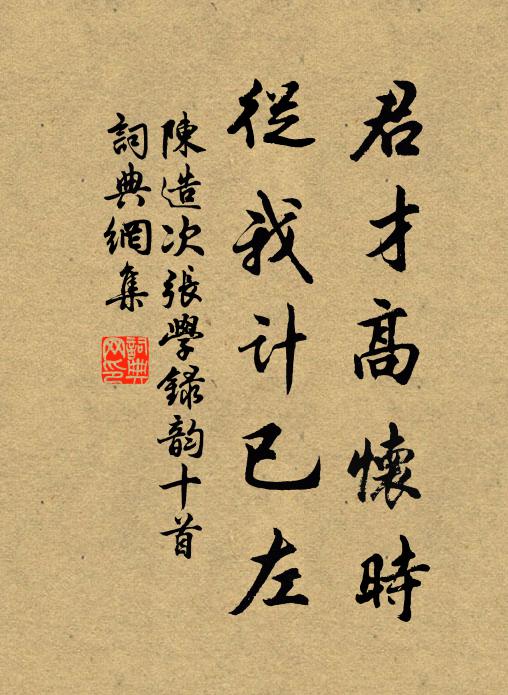 君才高懷時
從我計已左
陳造次張學錄韵十首
詞典網集
詞典网印